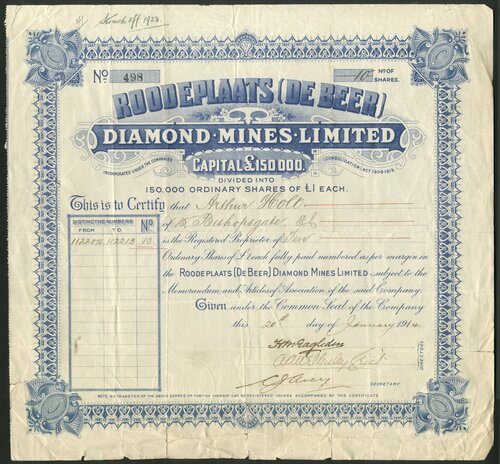 Struck off 1923.
No. 498
10 No OF SHARES.
ROODEPLAATS (DE BEER)
DIAMOND · MINES · LIMITED
INCORPORATED UNDER THE COMPANIES (CONSOLIDATION) ACT 1908-1913.
CAPITAL £150,000
DIVIDED INTO
150,000 ORDINARY SHARES OF £1 EACH.
This is to Certify that Arthur Holt
of Bishopsgate E.C
is the Registered Proprietor of Ten
Ordinary Shares of £1 each fully paid numbered as per margin in
the ROODEPLAATS (DE BEER) DIAMOND MINES LIMITED subject to the
Memorandum and Articles of Association of the said Company.
Given under the Common Seal of the Company
this 20th day of January 1914
DISTINCTIVE NUMBERS No
FROM TO
112204 112213 10
DIRECTORS.
SECRETARY.
NOTE, NO TRANSFER OF THE ABOVE SHARES OR PORTION THEREOF CAN BE REGISTERED UNLESS ACCOMPANIED BY THIS CERTIFICATE